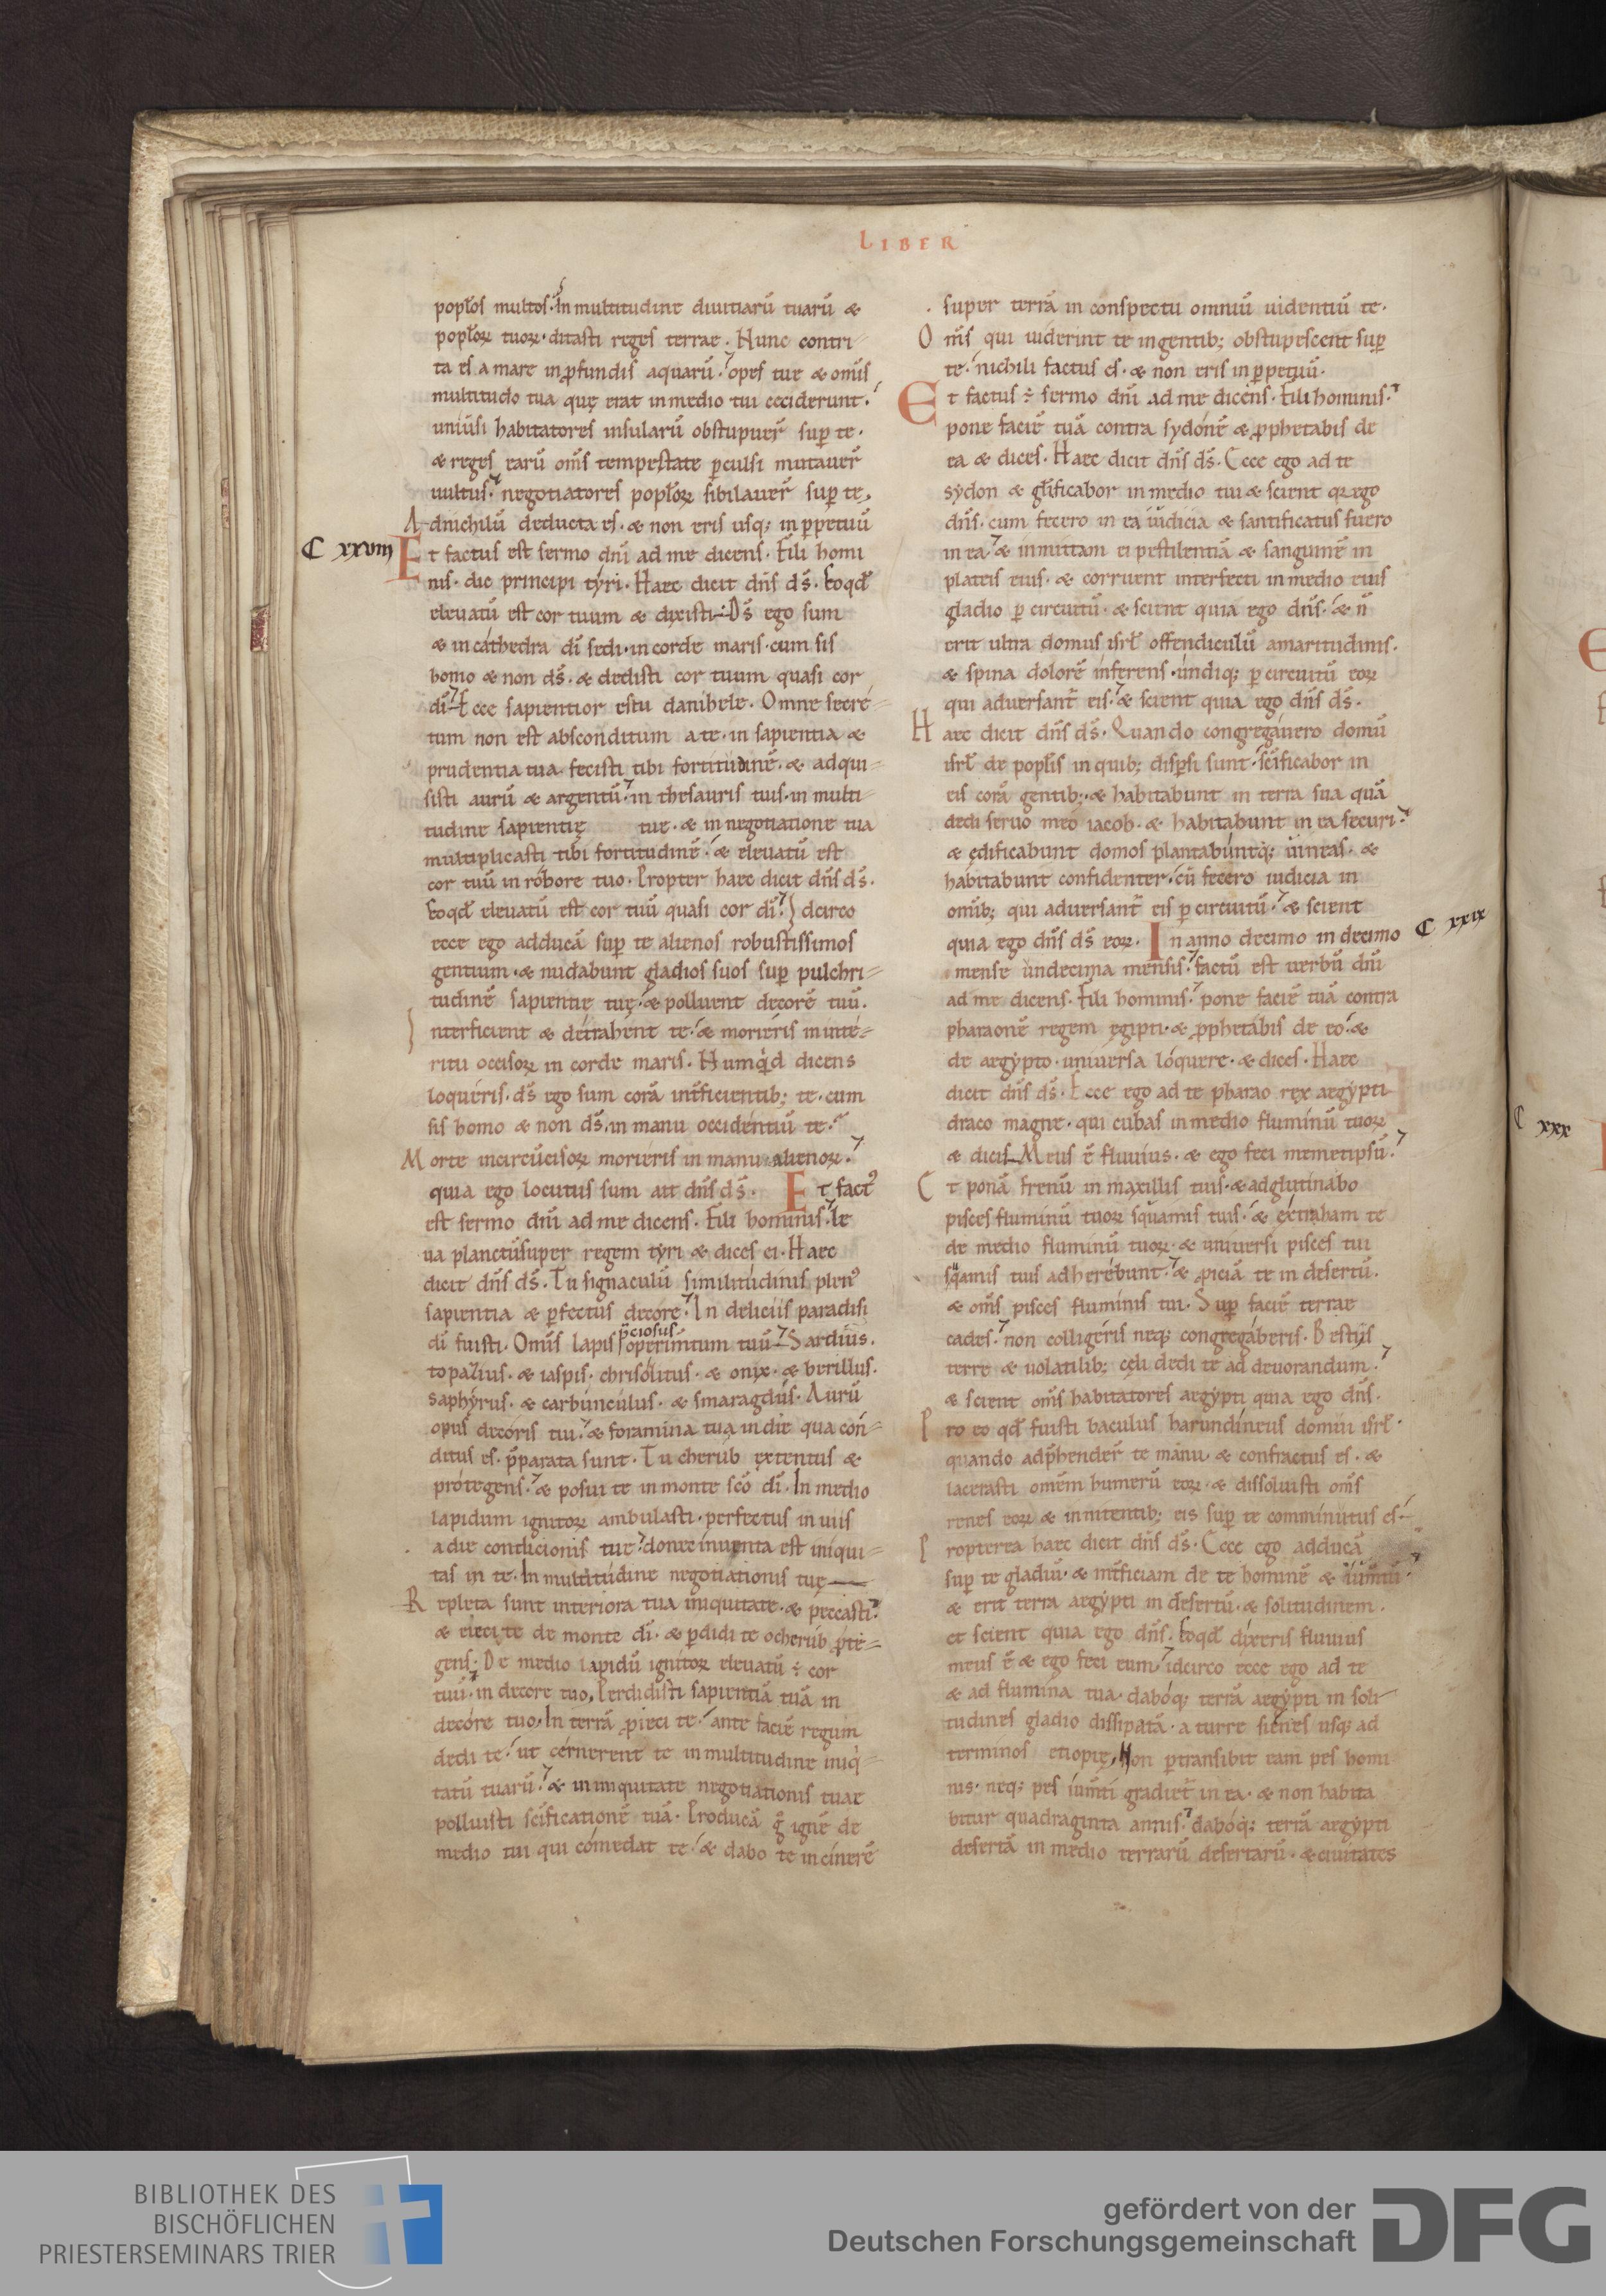 LIBER
popłos multos. In multitudine diuitiarū tuarū &
popłoꝝ tuoꝝ. ditasti reges terrae. Nunc contri-
ta es a mare in ꝓfundis aquarū. opes tue & om̄s
multitudo tua quę erat in medio tui ceciderunt.
uniūsi habitatores insularū obstupuer̄ suꝑ te.
& reges earū om̄s tempestate ꝑculsi mutauer̄
uultus. negotiatores popłoꝝ sibilauer̄ suꝑ te,
Adnichilū deducta es. & non eris usq; in ꝑpetuū
C xxviij
Et factus est sermo dn̄i ad me dicens. Fili homi
nis. dic principi tyri. Haec dicit dn̄s ds̄. Eoqđ
eleuatū est cor tuum & dixisti. Ds̄ ego sum
& in cathedra dī sedi. in corde maris. cum sis
homo & non ds̄. & dedisti cor tuum quasi cor
dī. Ecce sapientior es tu danihele. Omne secre-
tum non est absconditum a te. in sapientia &
prudentia tua fecisti tibi fortitudinē. & adqui-
sisti aurū & argentū. in thesauris tuis. in multi-
tudine sapientię tuę. & in negotiatione tua
multiplicasti tibi fortitudinē. & eleuatū est
cor tuū in robore tuo. Propter haec dicit dn̄s ds̄.
Eoqđ eleuatū est cor tuū quasi cor dī. Idcirco
ecce ego adducā suꝑ te alienos robustissimos
gentium. & nudabunt gladios suos suꝑ pulchri-
tudinē sapientię tuę. & polluent decorē tuū.
Interficient & detrahent te. & morieris in inte-
ritu occisoꝝ in corde maris. Numqd dicens
loqueris. ds̄ ego sum corā int̄ficientib; te. cum
sis homo & non ds̄. in manu occidentiū te.
Morte incircūcisoꝝ morieris in manu alienoꝝ.
quia ego locutus sum ait dn̄s ds̄. Et fact᾽
est sermo dn̄i ad me dicens. Fili hominis. le
ua planctū super regem tyri & dices ei. Haec
dicit dn̄s ds̄. Tu signaculū similitudinis plen᾽
sapientia & ꝑfectus decore. In deliciis paradisi
p̄ciosus
dī fuisti. Omīs lapis operimtum tuū. Sardius.
topazius. & iaspis. chrisolitus. & onix. & berillus.
saphyrus. & carbunculus. & smaragdus. Aurū
opus decoris tui. & foramina tua in die qua con-
ditus es. p̄parata sunt. Tu cherub extentus &
protegens. & posui te in monte sc̄o dī. In medio
lapidum ignitoꝝ ambulasti. perfectus in uiis
a die condicionis tuę. donec inuenta est iniqui-
tas in te. In multitudine negotiationis tuę
Repleta sunt interiora tua iniquitate. & peccasti.
& eieci te de monte dī. & ꝑdidi te o cherub ꝓte-
gens. De medio lapidū ignitoꝝ eleuatū ÷ cor
tuū. in decore tuo, Perdidisti sapientiā tuā in
decore tuo. In terrā ꝓieci te. ante faciē regum
dedi te. ut cernerent te in multitudine iniq-
tatū tuarū. & in iniquitate negotiationis tuae
polluisti sc̄ificationē tuā. Producā g̊ ignē de
medio tui qui comedat te. & dabo te in cinerē
super terrā in conspectu omniū uidentiū te.
Om̄s qui uiderint te in gentib; obstupescent suꝑ
te. nichili factus es. & non eris in ꝑpetuū.
Et factus ÷ sermo dn̄i ad me dicens. Fili hominis.
pone faciē tuā contra sydonē & ꝓphetabis de
ea & dices. Haec dicit dn̄s ds̄. Ecce ego ad te
sydon & glīficabor in medio tui & scient qꝛ ego
dn̄s. cum fecero in ea iudicia & santificatus fuero
in ea. & inmittam ei pestilentiā & sanguinē in
plateis eius. & corruent interfecti in medio eius
gladio ꝑ circuitū. & scient quia ego dn̄s. & n̄
erit ultra domus isrł offendiculū amaritudinis.
& spina dolorē inferens. undiq; ꝑ circuitū eoꝝ
qui aduersant̄ eis. & scient quia ego dn̄s ds̄.
Haec dicit dn̄s ds̄. Quando congregauero domū
isrł de popłis in quib; disꝑsi sunt. sc̄ificabor in
eis corā gentib;. & habitabunt in terra sua quā
dedi seruo meo iacob. & habitabunt in ea securi.
& ędificabunt domos plantabuntq; uineas. &
habitabunt confidenter. cū fecero iudicia in
omīb; qui aduersant̄ eis ꝑ circuitū. & scient
quia ego dn̄s ds̄ eoꝝ. In anno decimo in decimo
C xxix
mense undecima mensis. factū est uerbū dn̄i
ad me dicens. Fili hominis. pone faciē tuā contra
pharaonē regem egipti. & ꝓphetabis de eo. &
de aegypto. uniuersa loquere. & dices. Haec
dicit dn̄s ds̄. Ecce ego ad te pharao rex aegypti
draco magne. qui cubas in medio fluminū tuoꝝ
& dicis. Meus ē fluuius. & ego feci memetipsū.
Et ponā frenū in maxillis tuis. & adglutinabo
pisces fluminū tuoꝝ squamis tuis. & extraham te
de medio fluminū tuoꝝ. & uniuersi pisces tui
sqamis tuis adherebunt. & ꝓiciā te in desertū.
& om̄s pisces fluminis tui. Suꝑ faciē terrae
cades. non colligeris neq; congregaberis. Bestiis
terre & uolatilib; cęli dedi te ad deuorandum.
& scient om̄s habitatores aegypti quia ego dn̄s.
Pro eo qđ fuisti baculus harundineus domui isrł.
quando adp̄hender̄ te manu. & confractus es. &
lacerasti omēm humerū eoꝝ. & dissoluisti om̄s
renes eoꝝ & innitentib; eis suꝑ te comminutus es.
Propterea haec dicit dn̄s ds̄. Ecce ego adducā
suꝑ te gladiū. & int̄ficiam de te hominē & iūmtū
& erit terra aegypti in desertū. & solitudinem.
et scient quia ego dn̄s. Eoqđ dixeris fluuius
meus ē & ego feci eum. idcirco ecce ego ad te
& ad flumina tua. daboq; terrā aegypti in soli-
tudines gladio dissipatā. a turre sienes usq; ad
terminos etiopię, Non ꝑtransibit eam pes homi
nis. neq; pes iūmti gradiet̄ in ea. & non habita
bitur quadraginta annis. daboq; terrā aegypti
desertā in medio terrarū desertarū. & ciuitates
C xxx
BIBLIOTHEK DES
BISCHÖFLICHEN
PRIESTERSEMINARS TRIER
gefördert von der
Deutschen Forschungsgemeinschaft
DFG